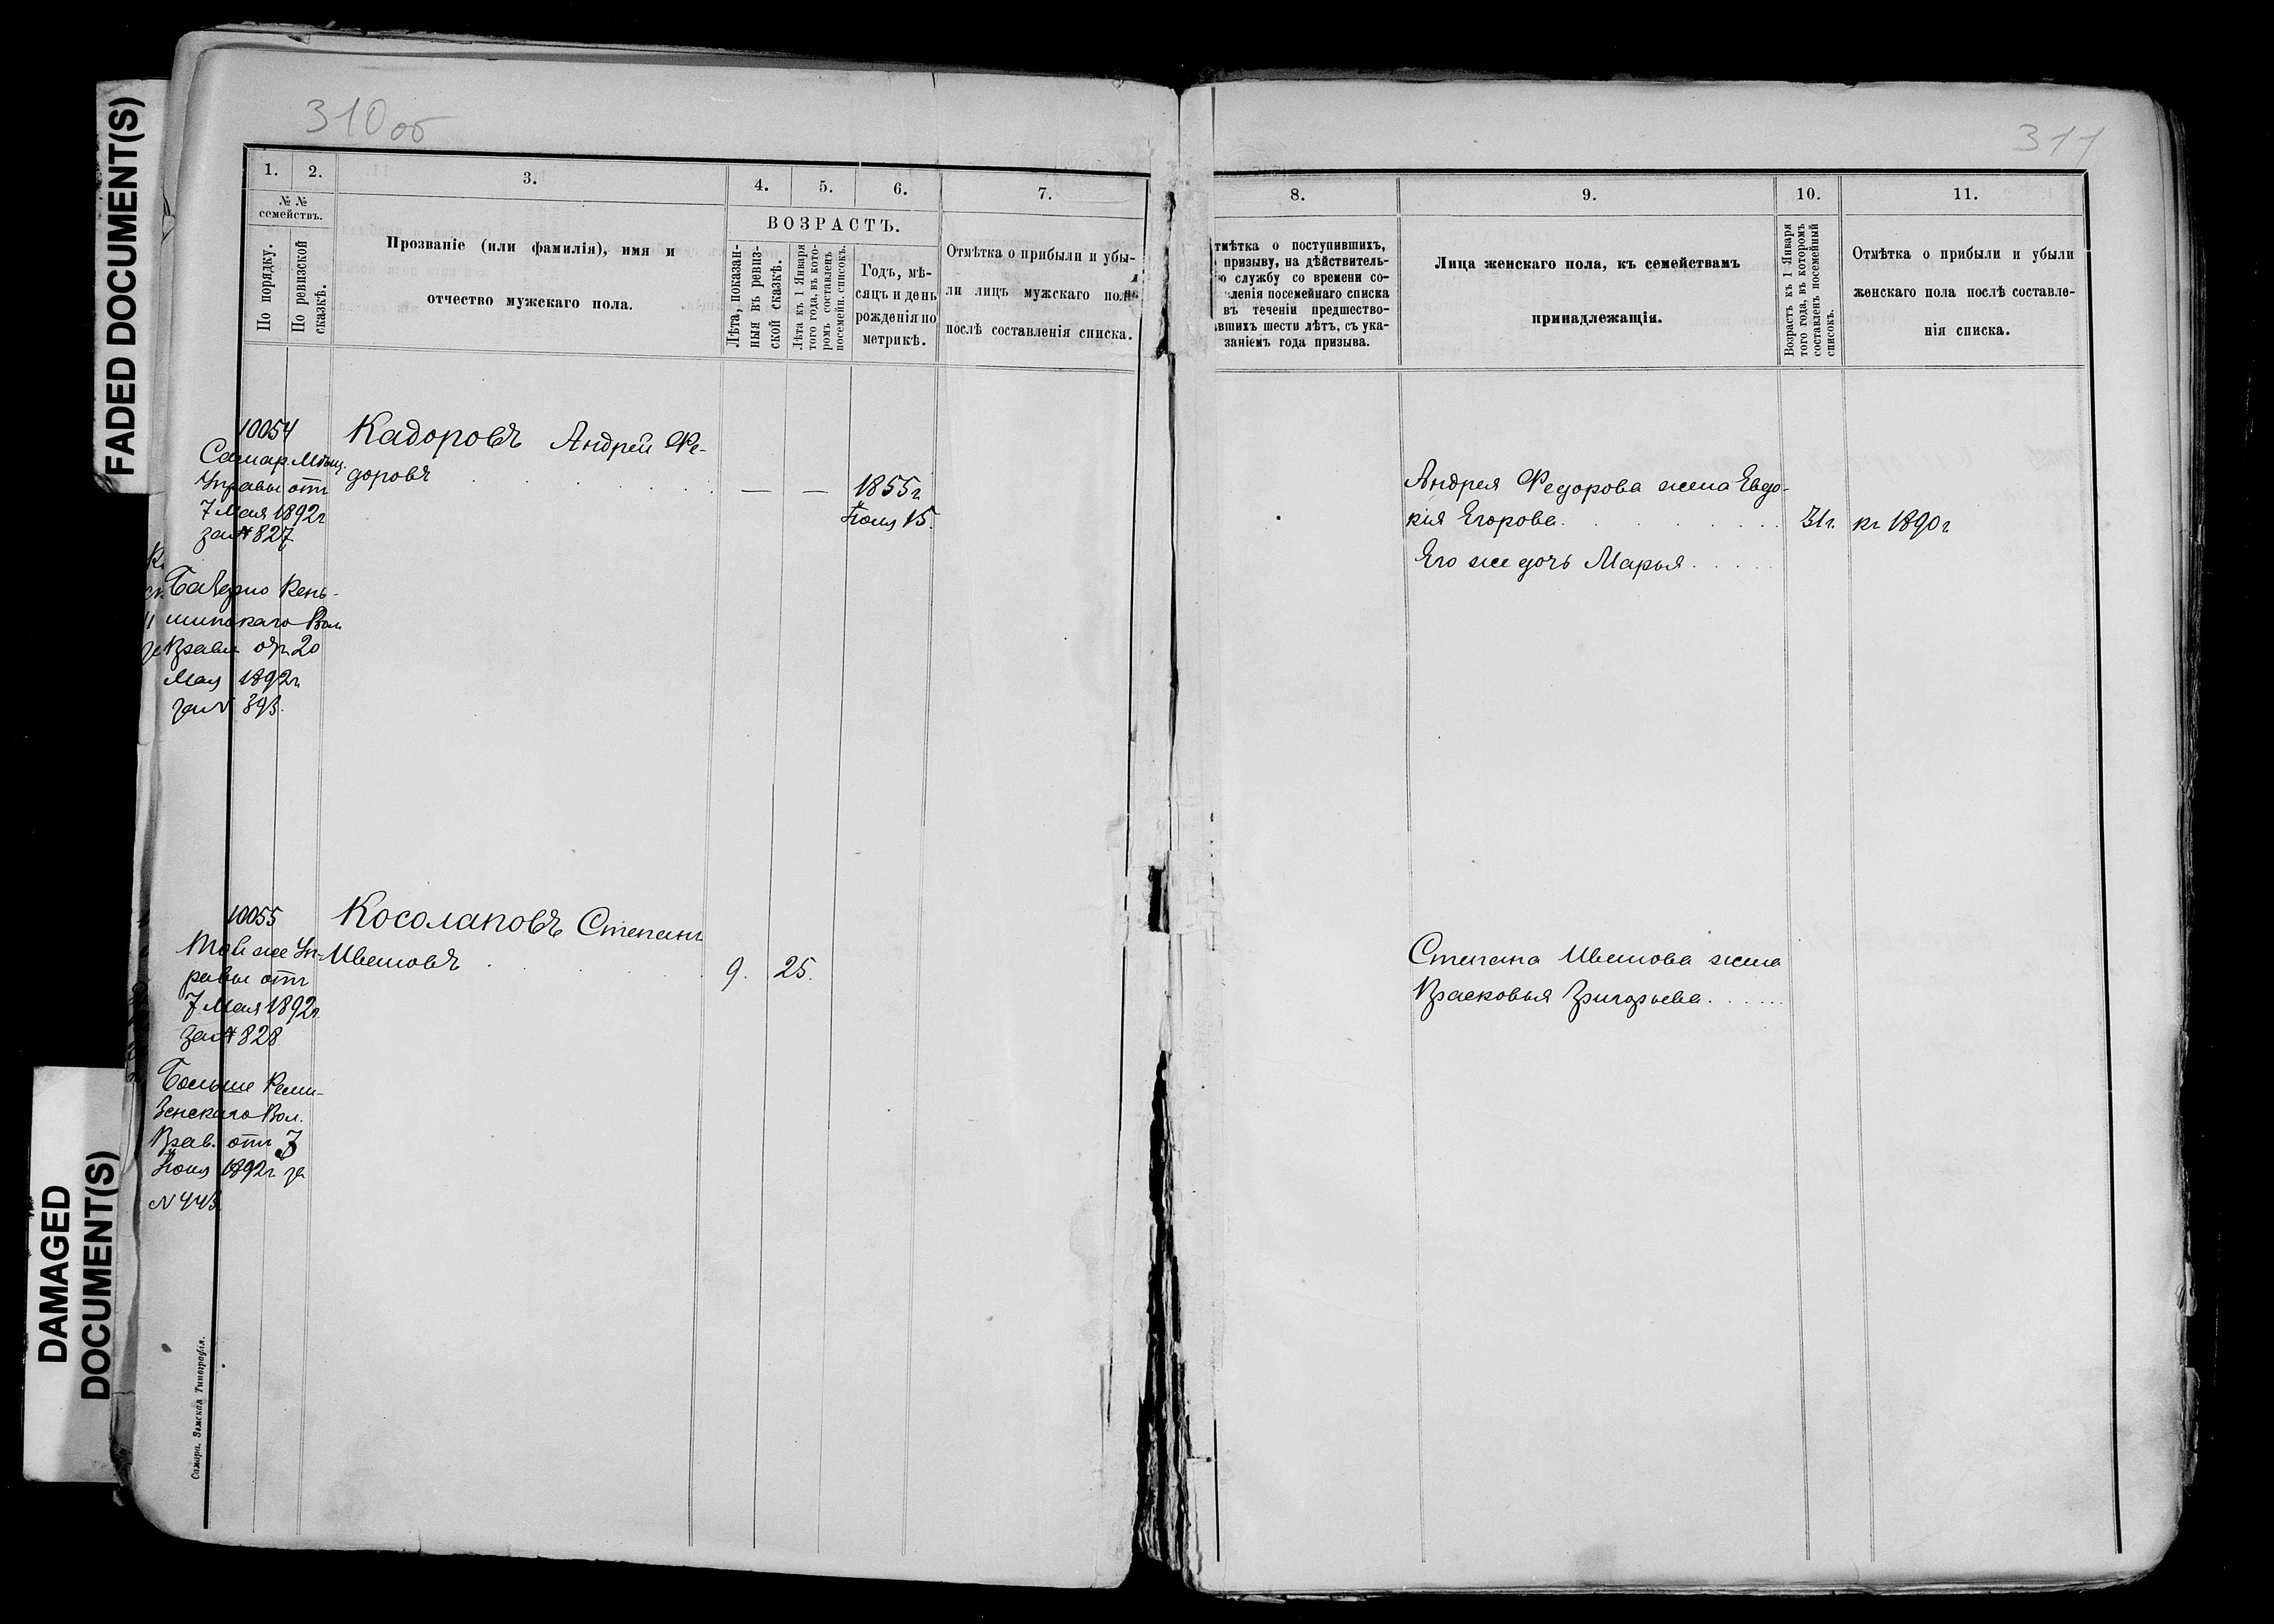 FADED DOCUMENT(S)
310об
1.
2.
3.
4.
5.
6.
7.
№ №
семействъ.
ВОЗРАСТЪ.
По порядку.
По ревизской
сказкѣ.
Прозваніе (или фамилія), имя и
отчество мужскаго пола.
Лѣта, показан-
ныя въ ревиз-
ской сказкѣ.
Лѣта къ 1 Января
того года, въ кото-
ромъ составленъ
посемейн. списокъ.
Годъ, мѣ-
сяцъ и день
рожденія по
метрикѣ.
Отмѣтка о прибыли и убы-
ли лицъ мужскаго пола
послѣ составленія списка.
10054
Самар. Мѣщ.
Управы отъ
7 Мая 1892г
за № 827
Кадоровъ Андрей Ѳе-
доровъ
— — 1855г
Іюня 15.
Прав. от 20
Мая 1892г
за № 893.
10055
Той же Уп-
равы отъ
7 Мая 1892г.
за № 828
Косолаповъ Степанъ
Ивановъ 9. 25.
Больше
Вол.
Прав. отъ 7
Іюня 1892г за
№ 443
Самара. Земская Типографія.
DAMAGED
DOCUMENT(S)
311
8.
9.
10.
11.
тмѣтка о поступившихъ,
призыву, на дѣйствитель-
ю службу со времени со-
ленія посемейнаго списка
въ теченіи предшество-
вшихъ шести лѣтъ, съ ука-
заніемъ года призыва.
Лица женскаго пола, къ семействамъ
принадлежащія.
Возрастъ къ 1 Января
того года, въ которомъ
составленъ посемейный
списокъ.
Отмѣтка о прибыли и убыли
женскаго пола послѣ составле-
нія списка.
Андрея Ѳедорова жена Евдо-
кія Егорова 31г. къ 1890г
Его же дочь Марья
Степана Иванова жена
Прасковья Григорьева